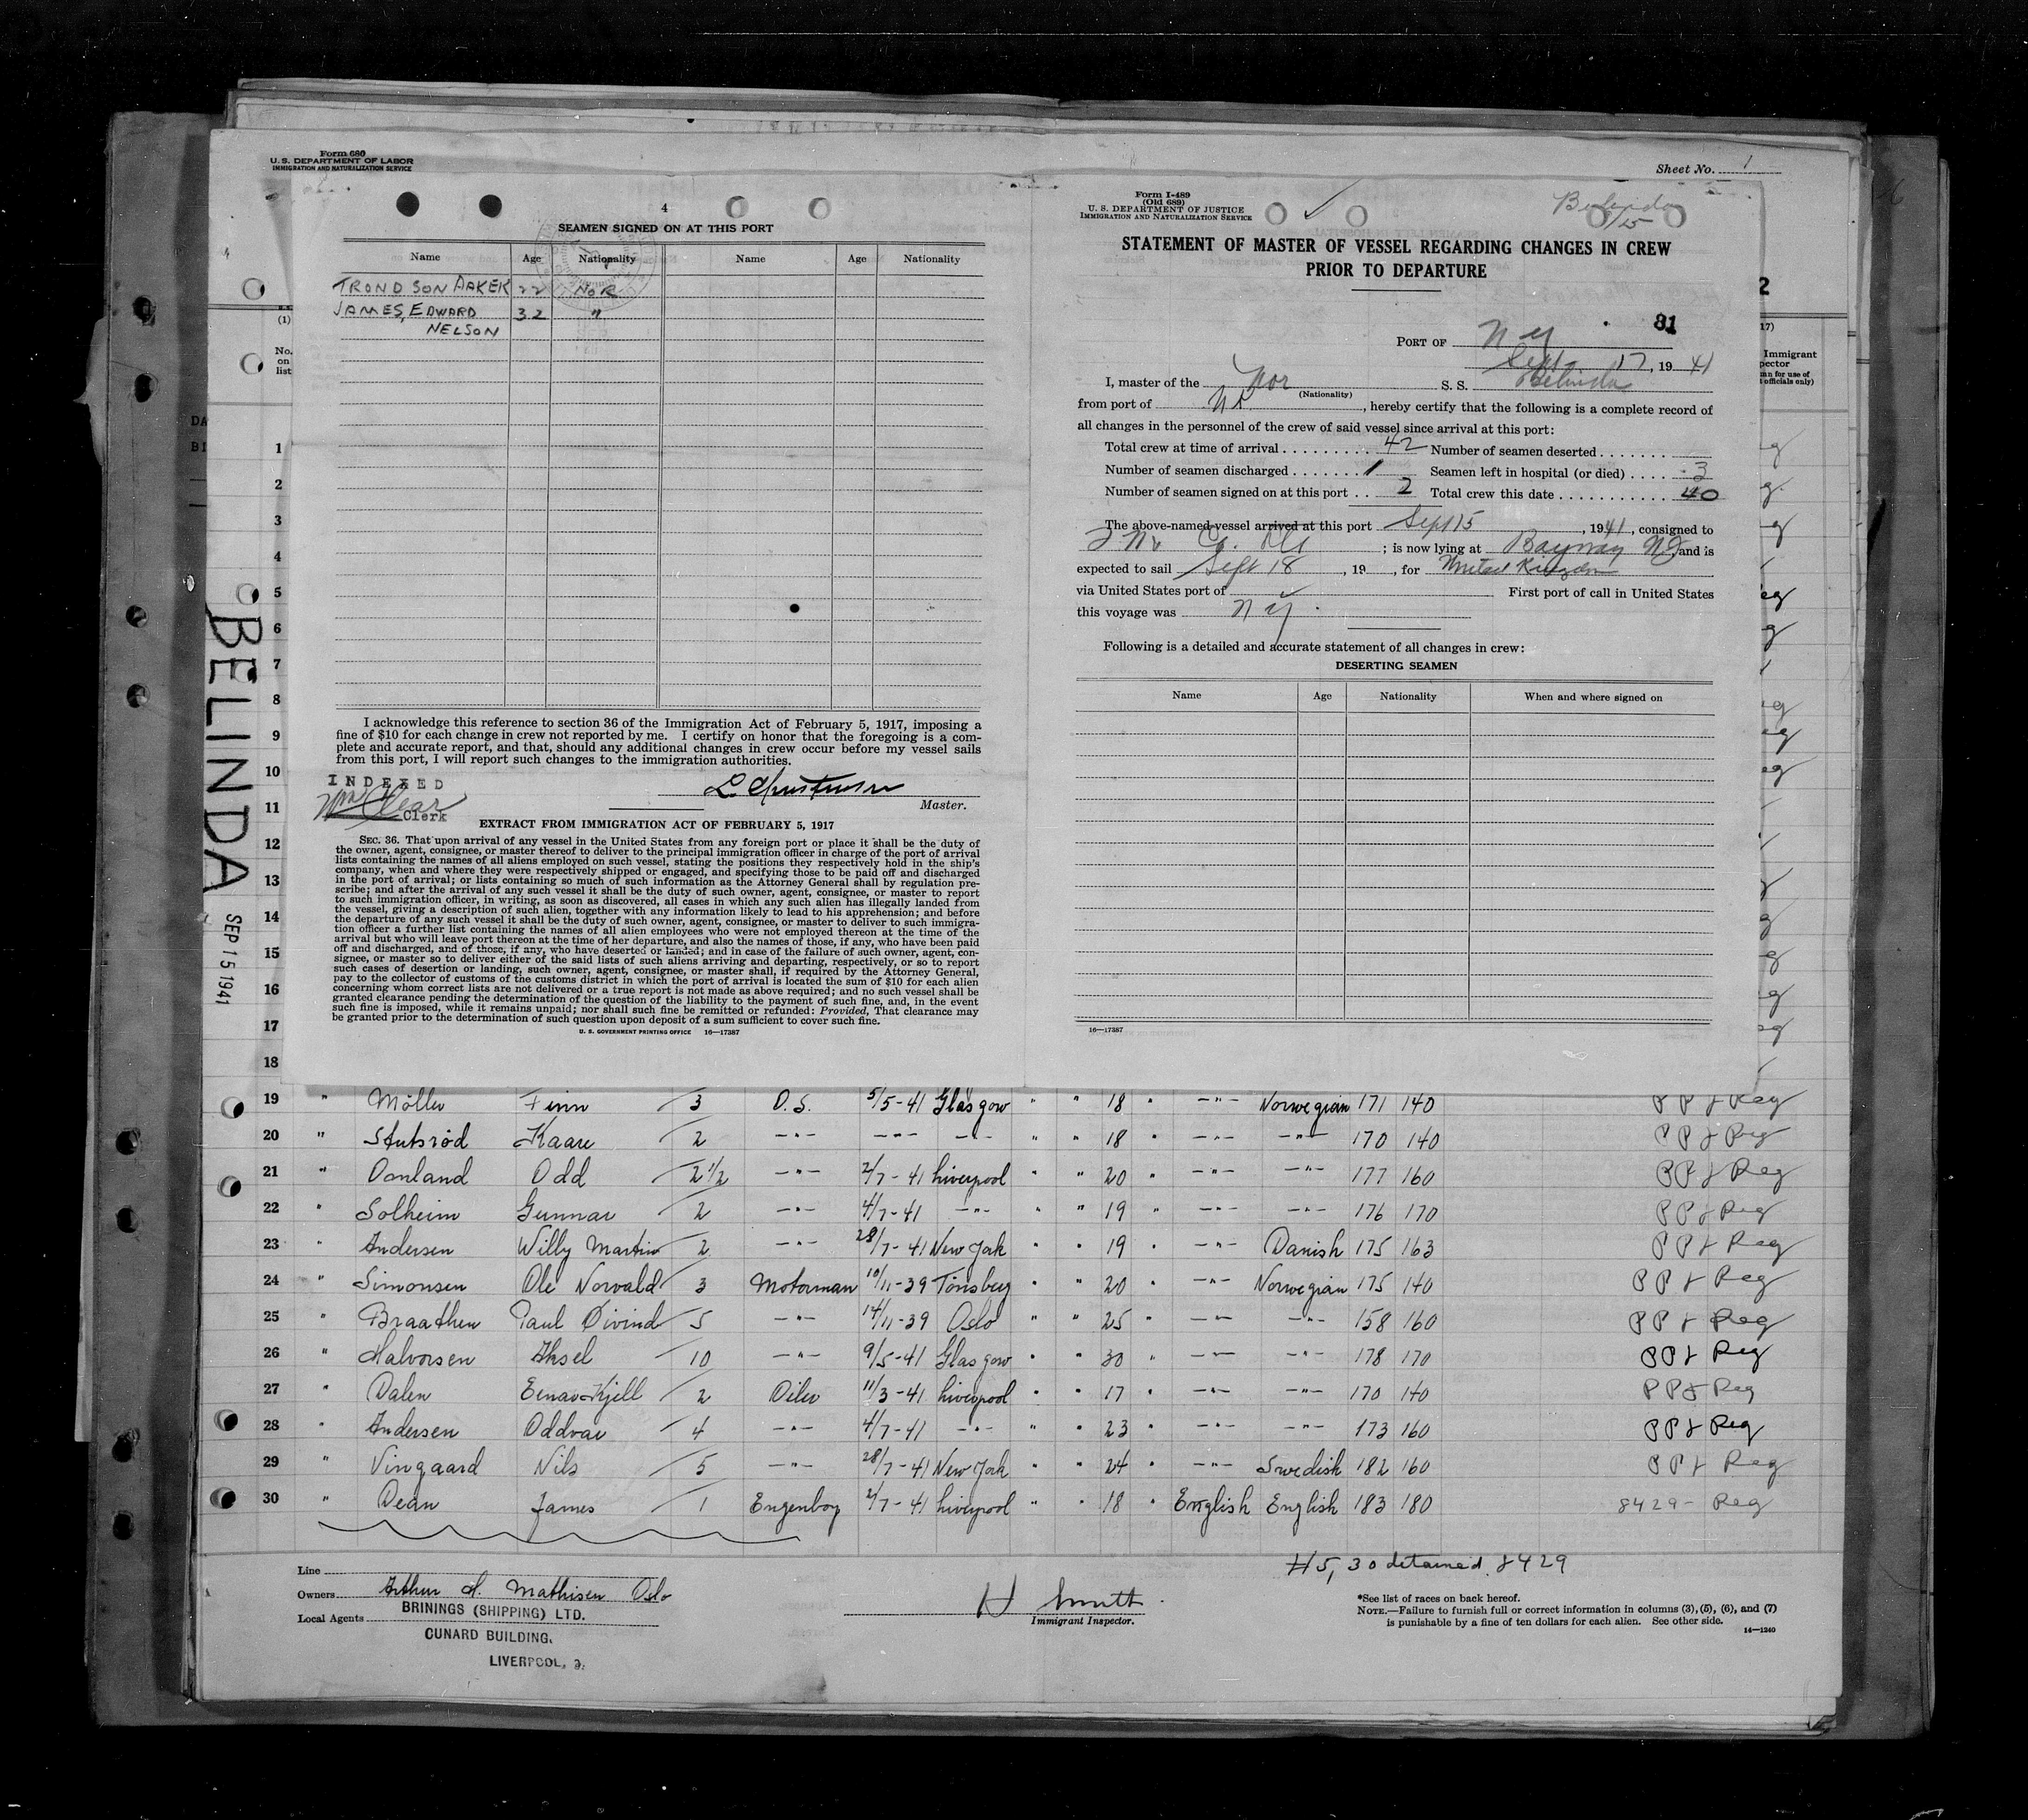 Form 680
U. S. DEPARTMENT OF LABOR
IMMIGRATION AND NATURALIZATION SERVICE
Sheet No. 1
4
SEAMEN SIGNED ON AT THIS PORT
Name Age Nationality Name Age Nationality
TROND SON AAKER 22 NOR
JAMES, EDWARD 32 "
NELSON
I acknowledge this reference to section 36 of the Immigration Act of February 5, 1917, imposing a
fine of $10 for each change in crew not reported by me. I certify on honor that the foregoing is a com-
plete and accurate report, and that, should any additional changes in crew occur before my vessel sails
from this port, I will report such changes to the immigration authorities.
INDEXED
Clerk
Master.
EXTRACT FROM IMMIGRATION ACT OF FEBRUARY 5, 1917
SEC. 36. That upon arrival of any vessel in the United States from any foreign port or place it shall be the duty of
the owner, agent, consignee, or master thereof to deliver to the principal immigration officer in charge of the port of arrival
lists containing the names of all aliens employed on such vessel, stating the positions they respectively hold in the ship's
company, when and where they were respectively shipped or engaged, and specifying those to be paid off and discharged
in the port of arrival; or lists containing so much of such information as the Attorney General shall by regulation pre-
scribe; and after the arrival of any such vessel it shall be the duty of such owner, agent, consignee, or master to report
to such immigration officer, in writing, as soon as discovered, all cases in which any such alien has illegally landed from
the vessel, giving a description of such alien, together with any information likely to lead to his apprehension; and before
the departure of any such vessel it shall be the duty of such owner, agent, consignee, or master to deliver to such immigra-
tion officer a further list containing the names of all alien employees who were not employed thereon at the time of the
arrival but who will leave port thereon at the time of her departure, and also the names of those, if any, who have been paid
off and discharged, and of those, if any, who have deserted or landed; and in case of the failure of such owner, agent, con-
signee, or master so to deliver either of the said lists of such aliens arriving and departing, respectively, or so to report
such cases of desertion or landing, such owner, agent, consignee, or master shall, if required by the Attorney General,
pay to the collector of customs of the customs district in which the port of arrival is located the sum of $10 for each alien
concerning whom correct lists are not delivered or a true report is not made as above required; and no such vessel shall be
granted clearance pending the determination of the question of the liability to the payment of such fine, and, in the event
such fine is imposed, while it remains unpaid; nor shall such fine be remitted or refunded: Provided, That clearance may
be granted prior to the determination of such question upon deposit of a sum sufficient to cover such fine.
U. S. GOVERNMENT PRINTING OFFICE 16—17387
Form I-489
(Old 689)
U. S. DEPARTMENT OF JUSTICE
IMMIGRATION AND NATURALIZATION SERVICE
Belinda
9/15
STATEMENT OF MASTER OF VESSEL REGARDING CHANGES IN CREW
PRIOR TO DEPARTURE
81
PORT OF N Y
Sept 17, 1941
I, master of the Nor S. S. Belinda
(Nationality)
from port of , hereby certify that the following is a complete record of
all changes in the personnel of the crew of said vessel since arrival at this port:
Total crew at time of arrival 42 Number of seamen deserted
Number of seamen discharged 1 Seamen left in hospital (or died) 3
Number of seamen signed on at this port 2 Total crew this date 40
The above-named vessel arrived at this port Sept 15, 1941, consigned to
; is now lying at Bayway NJ and is
expected to sail Sept 18, 19 , for United Kingdom
via United States port of First port of call in United States
this voyage was N Y.
Following is a detailed and accurate statement of all changes in crew:
DESERTING SEAMEN
Name Age Nationality When and where signed on
16—17387
BELINDA
SEP 15 1941
(1)
No. on list
1
2
3
4
5
6
7
8
9
10
11
12
13
14
15
16
17
18
19 " Möller Finn 3 O.S. 5/5-41 Glasgow " " 18 " -"- Norwegian 171 140 PP & Reg
20 " Stubsröd Kaare 2 -"- -"- -"- " " 18 " -"- -"- 170 140 PP & Reg
21 " Odd 2 1/2 -"- 2/7-41 Liverpool " " 20 " -"- -"- 177 160 PP & Reg
22 " Solheim Gunnar 2 -"- 4/7-41 -"- " " 19 " -"- -"- 176 170 PP & Reg
23 " Andersen Willy Martin 2 -"- 28/7-41 New York " " 19 " -"- Danish 175 163 PP & Reg
24 " Simonsen Ole Norvald 3 Motorman 10/11-39 Tönsberg " " 20 " -"- Norwegian 175 140 PP & Reg
25 " Braathen Paul Öivind 5 -"- 14/11-39 Oslo " " 25 " -"- -"- 158 160 PP & Reg
26 " Halvorsen Aksel 10 -"- 9/5-41 Glasgow " " 30 " -"- -"- 178 170 PP & Reg
27 " Dalen Einar Kjell 2 Oiler 11/3-41 Liverpool " " 17 " -"- -"- 170 140 PP & Reg
28 " Andersen Oddvar 4 -"- 4/7-41 -"- " " 23 " -"- -"- 173 160 PP & Reg
29 " Vingaard Nils 5 -"- 28/7-41 New York " " 24 " -"- Swedish 182 160 PP & Reg
30 " Dean James 1 Engenboy 2/7-41 Liverpool " " 18 " English English 183 180 8429- Reg
#5, 30 detained 8429
Line
Owners Arthur H. Mathisen Oslo
Local Agents BRININGS (SHIPPING) LTD.
CUNARD BUILDING,
LIVERPOOL, 3.
H Smith
Immigrant Inspector.
*See list of races on back hereof.
NOTE.—Failure to furnish full or correct information in columns (3), (5), (6), and (7)
is punishable by a fine of ten dollars for each alien. See other side.
14—1240